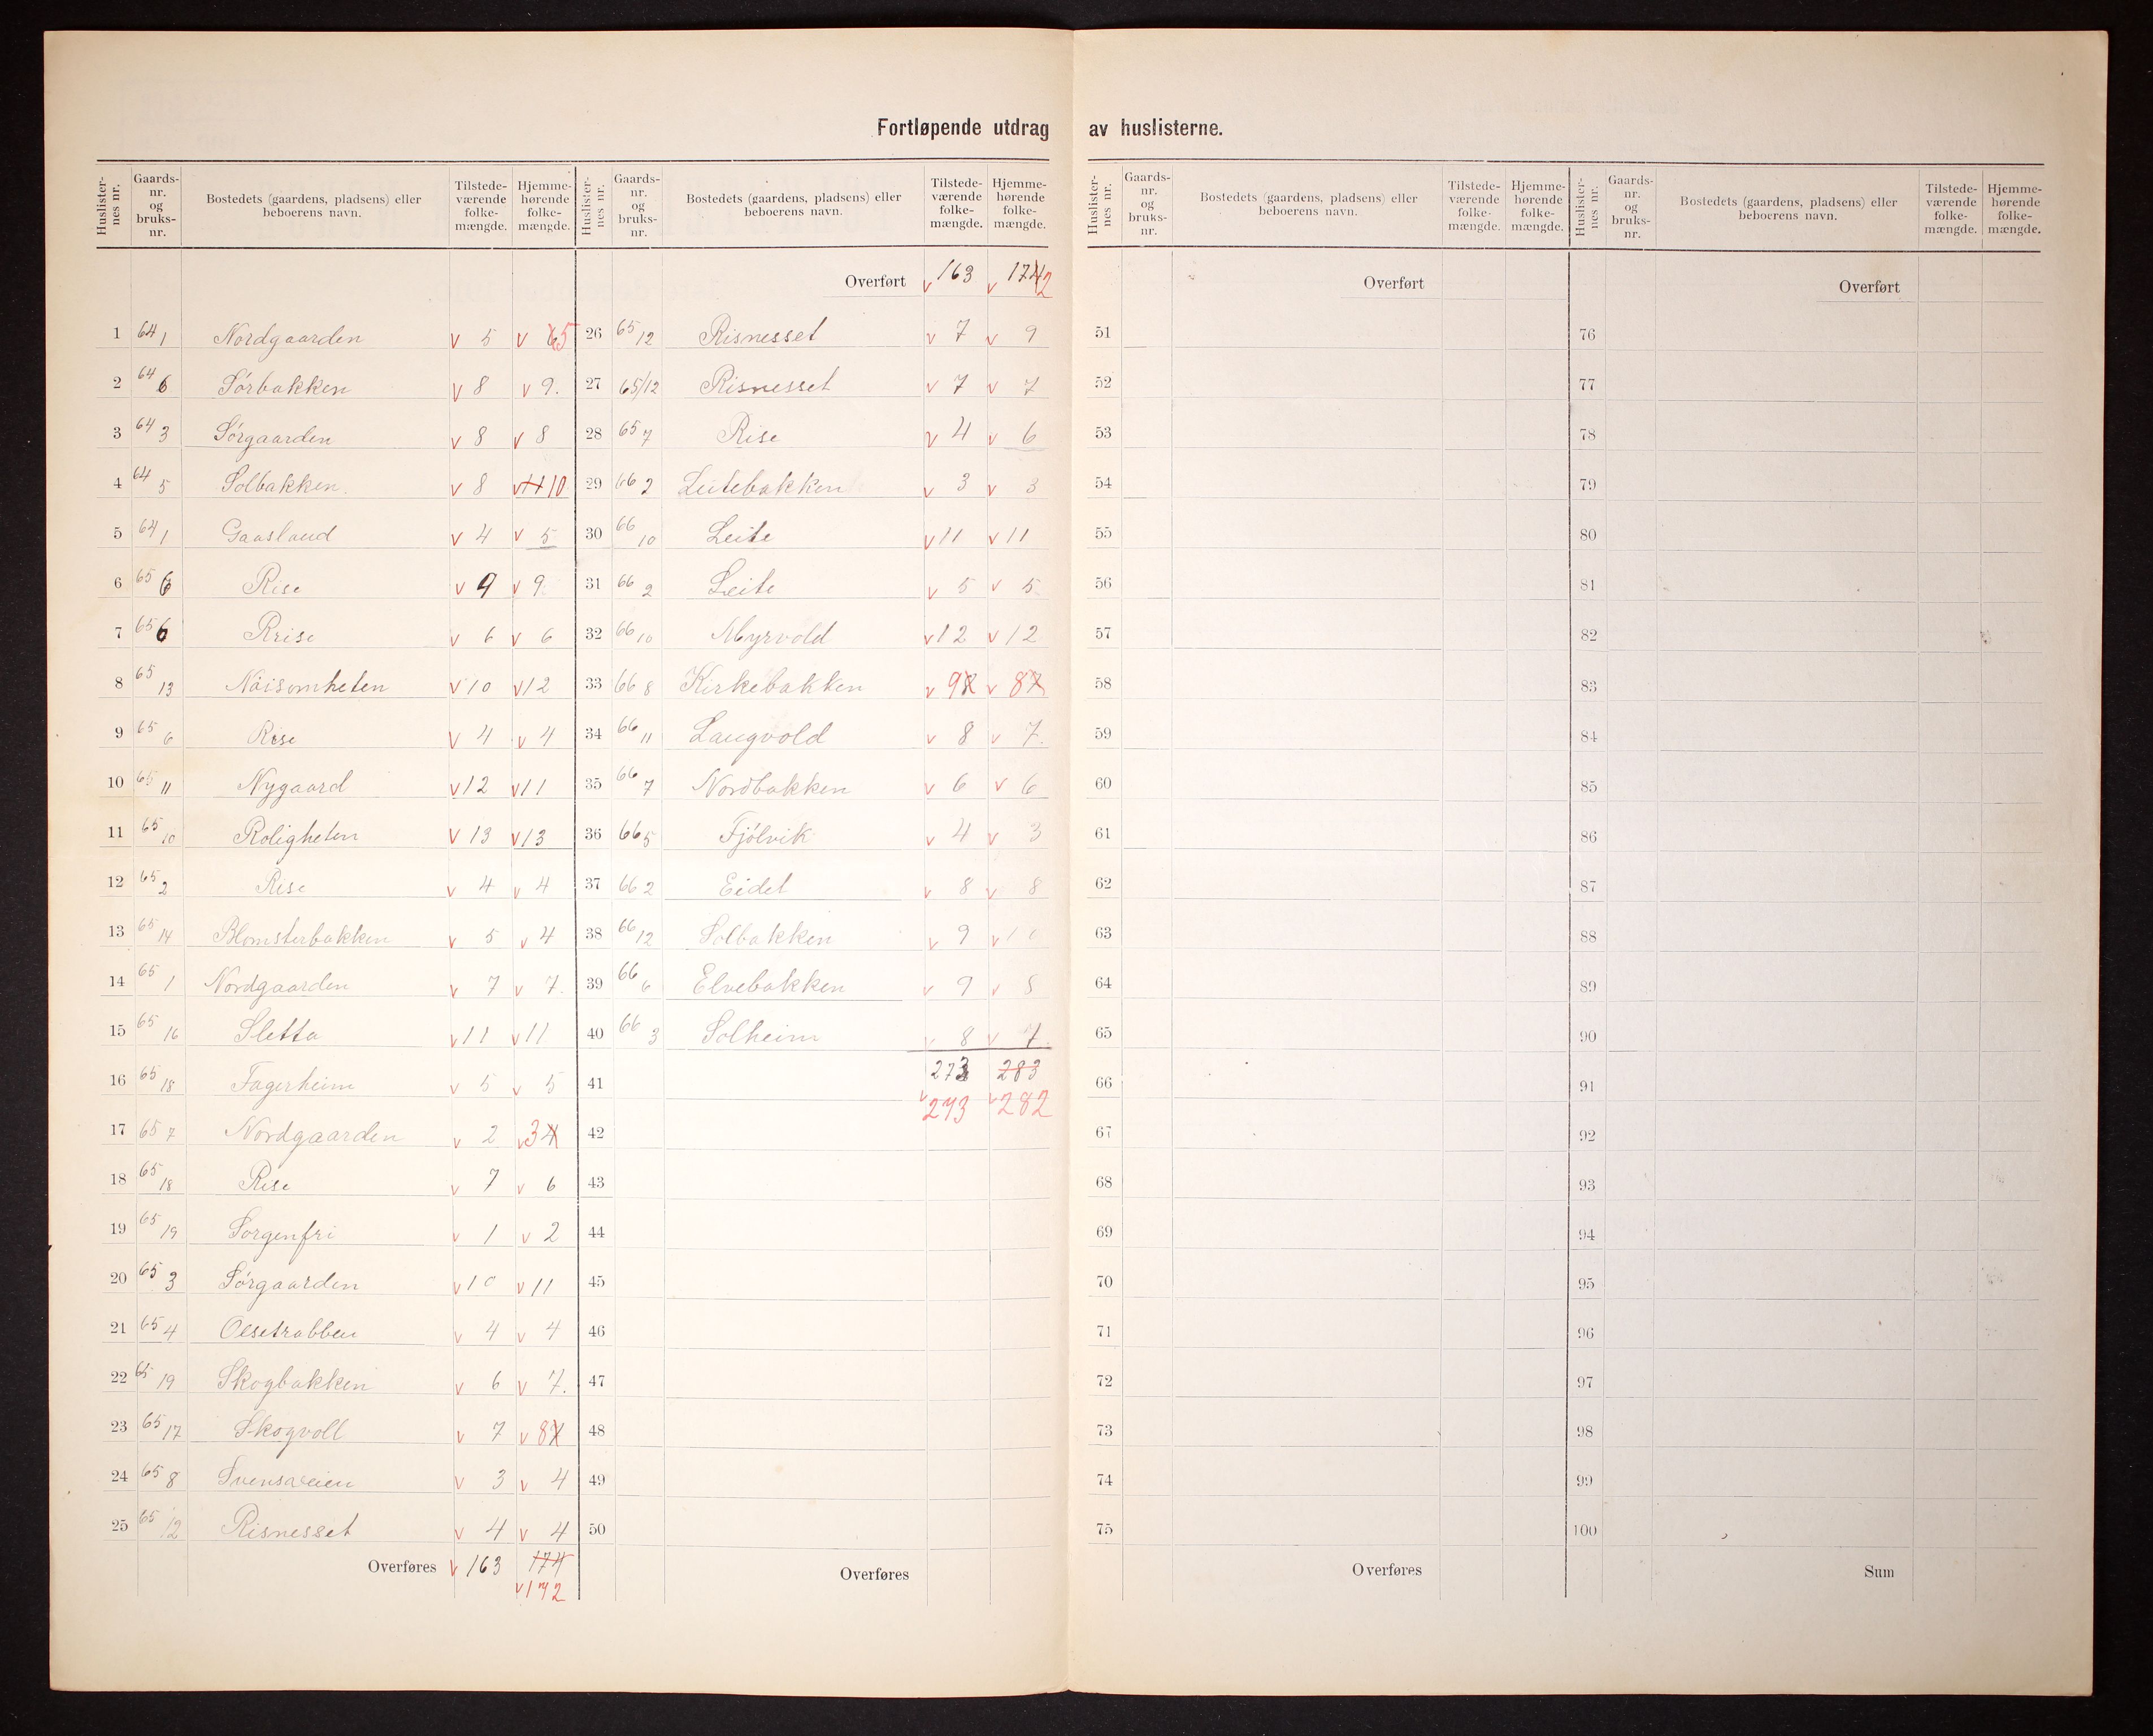 Fortløpende utdrag av huslisterne.
Huslisternes nr. Gaardsnr. og bruksnr. Bostedets (gaardens, pladsens) eller beboerens navn. Tilstedeværende folkemængde. Hjemmehørende folkemængde.
1 64/1 Nordgaarden v 5 v 65
2 64/6 Sörbakken v 8 v 9.
3 64/3 Sörgaarden v 8 v 8
4 64/5 Solbakken. v 8 v 11 10
5 64/1 Gaasland v 4 v 5
6 65/6 Rise v 9 v 9.
7 65/6 Rrise v 6 v 6
8 65/13 Nöisomheten v 10 v 12
9 65/6 Rise v 4 v 4
10 65/11 Nygaard v 12 v 11
11 65/10 Roligheten v 13 v 13
12 65/2 Rise v 4 v 4
13 65/14 Blomsterbakken v 5 v 4
14 65/1 Nordgaarden v 7 v 7.
15 65/16 Sletta v 11 v 11
16 65/18 Fagerheim v 5 v 5
17 65/7 Nordgaarden v 2 v 34
18 65/18 Rise v 7 v 6
19 65/19 Sorgenfri v 1 v 2
20 65/3 Sörgaarden v 10 v 11
21 65/4 Olsetrabben v 4 v 4
22 65/19 Skogbakken v 6 v 7.
23 65/17 Skogvoll v 7 v 87
24 65/8 Svensveien v 3 v 4
25 65/12 Risnesset v 4 v 4
Overføres v 163 174
v 172
Huslisternes nr. Gaardsnr. og bruksnr. Bostedets (gaardens, pladsens) eller beboerens navn. Tilstedeværende folkemængde. Hjemmehørende folkemængde.
Overført v 163 v 1742
26 65/12 Risnesset v 7 v 9
27 65/12 Risnesset v 7 v 7
28 65/7 Rise v 4 v 6
29 66/2 Leitebakken v 3 v 3
30 66/10 Leite v 11 v 11
31 66/2 Leite v 5 v 5
32 66/10 Myrvold v 12 v 12
33 66/8 Kirkebakken v 98 v 87
34 66/11 Langvold v 8 v 7.
35 66/7 Nordbakken v 6 v 6
36 66/5 Fjölvik v 4 v 3
37 66/2 Eidet v 8 v 8
38 66/12 Solbakken v 9 v 10
39 66/6 Elvebakken v 9 v 8
40 66/3 Solheim v 8 v 7.
41 273 283
v 273 v 282
42
43
44
45
46
47
48
49
50
Overføres
Huslisternes nr. Gaardsnr. og bruksnr. Bostedets (gaardens, pladsens) eller beboerens navn. Tilstedeværende folkemængde. Hjemmehørende folkemængde.
Overført
51
52
53
54
55
56
57
58
59
60
61
62
63
64
65
66
67
68
69
70
71
72
73
74
75
Overføres
Huslisternes nr. Gaardsnr. og bruksnr. Bostedets (gaardens, pladsens) eller beboerens navn. Tilstedeværende folkemængde. Hjemmehørende folkemængde.
Overført
76
77
78
79
80
81
82
83
84
85
86
87
88
89
90
91
92
93
94
95
96
97
98
99
100
Sum